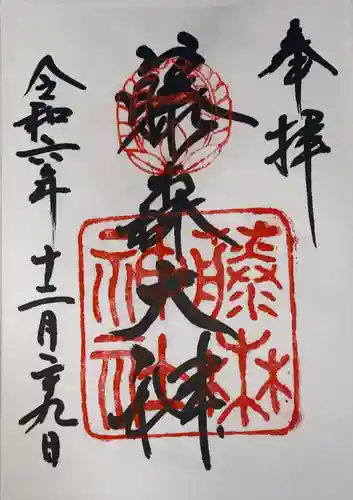 奉拝
藤森大神
令和六年十二月二十九日
藤森
神社